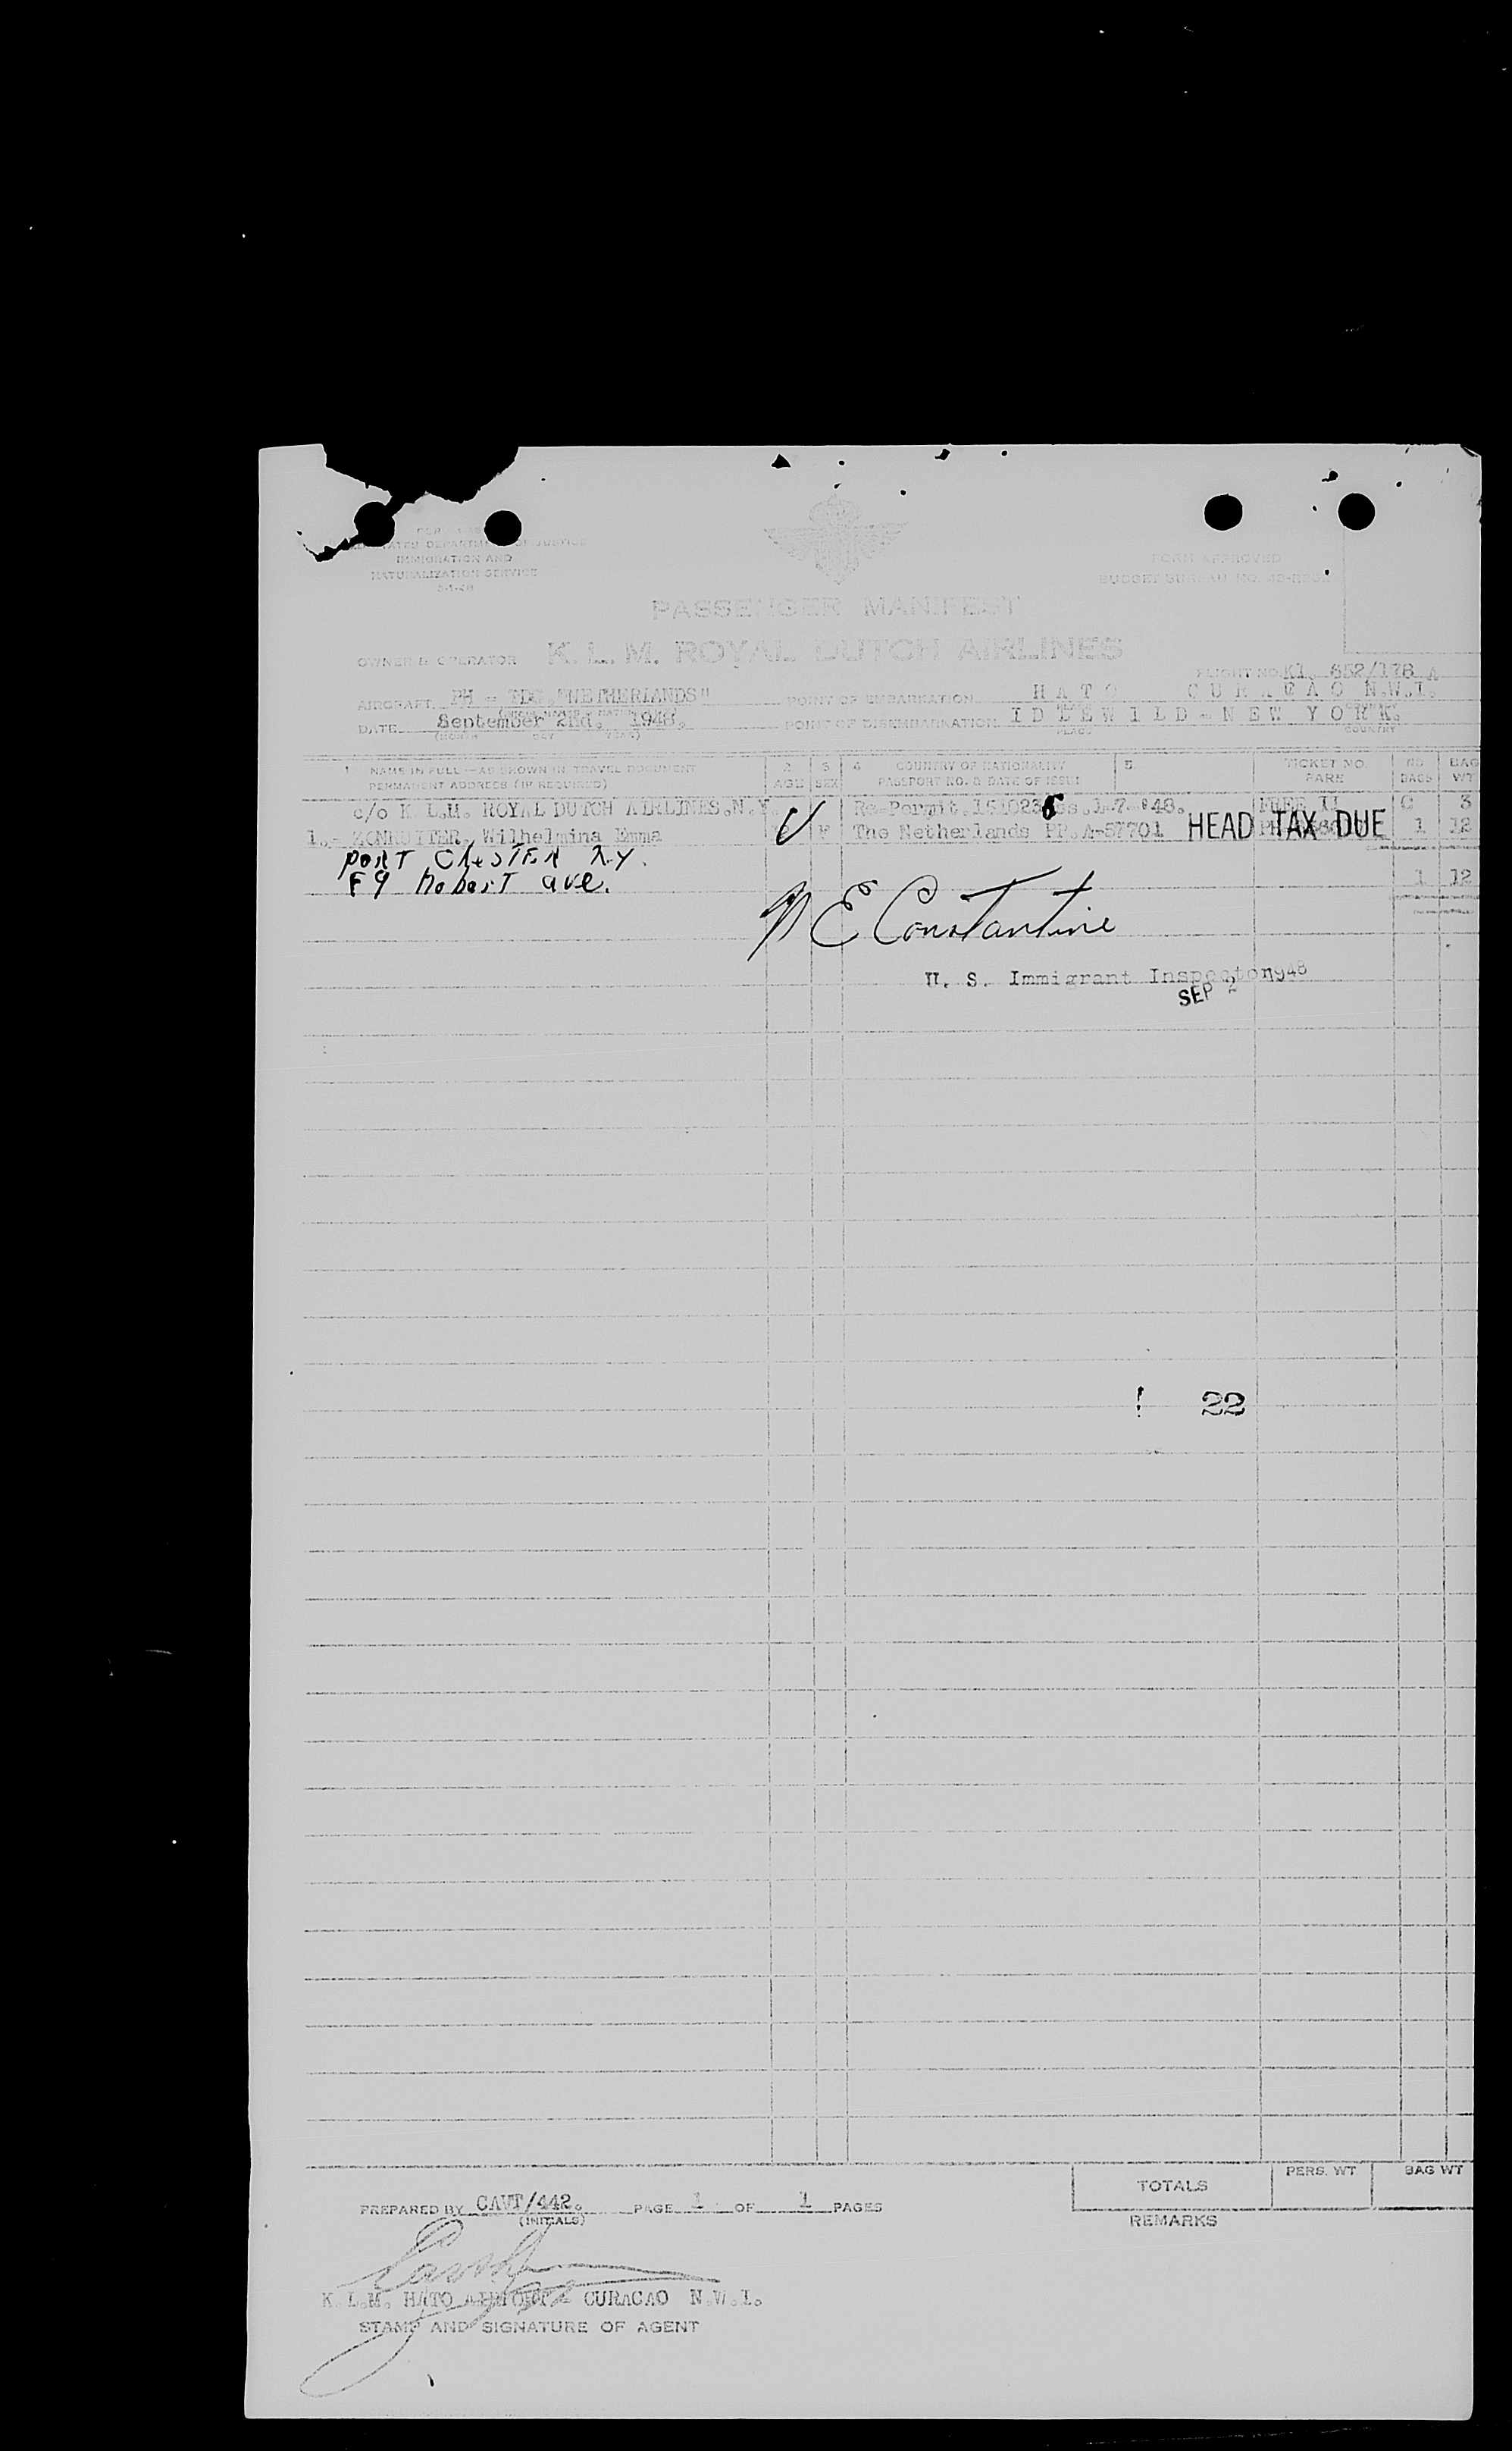 DEPARTMENT OF JUSTICE
IMMIGRATION AND
NATURALIZATION SERVICE
FORM APPROVED
BUDGET BUREAU NO.
PASSENGER MANIFEST
OWNER & OPERATOR K. L. M. ROYAL DUTCH AIRLINES
FLIGHT NO. Kl. 652/178 A
AIRCRAFT PH - "NETHERLANDS" POINT OF EMBARKATION H A T O C U R A C A O N.W.I.
DATE September 2nd, 1948. POINT OF DISEMBARKATION I D L E W I L D - N E W Y O R K.
(MONTH DAY YEAR) PLACE COUNTRY
1 NAME IN FULL—AS SHOWN IN TRAVEL DOCUMENT 2 3 4 COUNTRY OF NATIONALITY 5 TICKET NO. NO BAG
PERMANENT ADDRESS (IF REQUIRED) AGE SEX PASSPORT NO. & DATE OF ISSUE FARE BAGS WT
c/o K.L.M. ROYAL DUTCH AIRLINES.N.Y. Re-Permit. FREE II 0 3
1.- Wilhelmina Emma F The Netherlands PP.A-57701 HEAD TAX DUE 1 12
PORT CHESTER N.Y.
hobart ave. 1 12
Constantine
U. S. Immigrant Inspector
SEP 2 1948
! 22
TOTALS PERS. WT BAG WT
PREPARED BY CAVT/442. PAGE 1 OF 1 PAGES
(INITIALS)
REMARKS
K.L.M. HATO AIRPORT - CURACAO N.W.I.
STAMP AND SIGNATURE OF AGENT